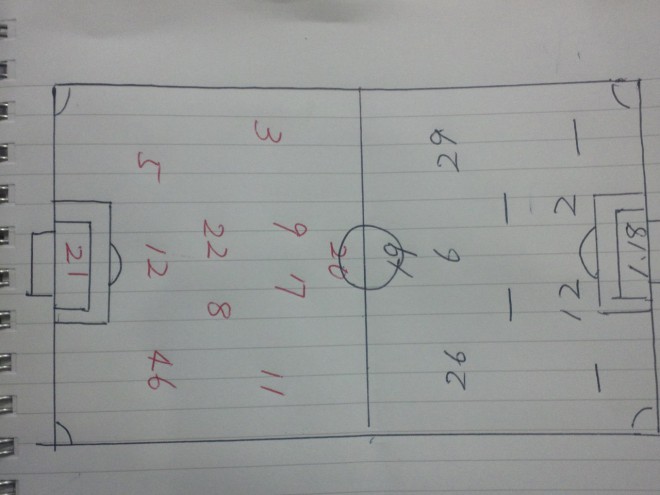 1.18
— 2 12 —
— —
29 6 26
19
20
3 9 17 11
22 8
5 12 46
21